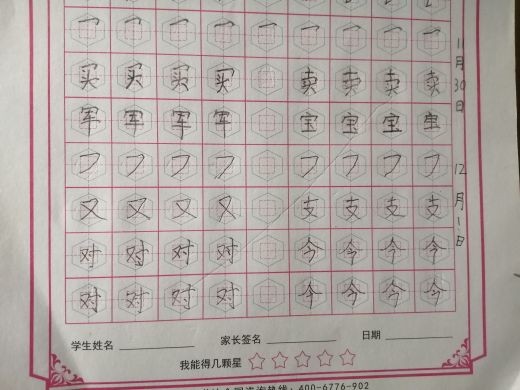 买 买 买 买 卖 卖 卖 卖
军 军 军 军 宝 宝 宝 宝
又 又 又 又 支 支 支 支
对 对 对 对 今 今 今 今
对 对 对 对 今 今 今 今
11月30日
12月1日
学生姓名 家长签名 日期
我能得几颗星
400-6776-902